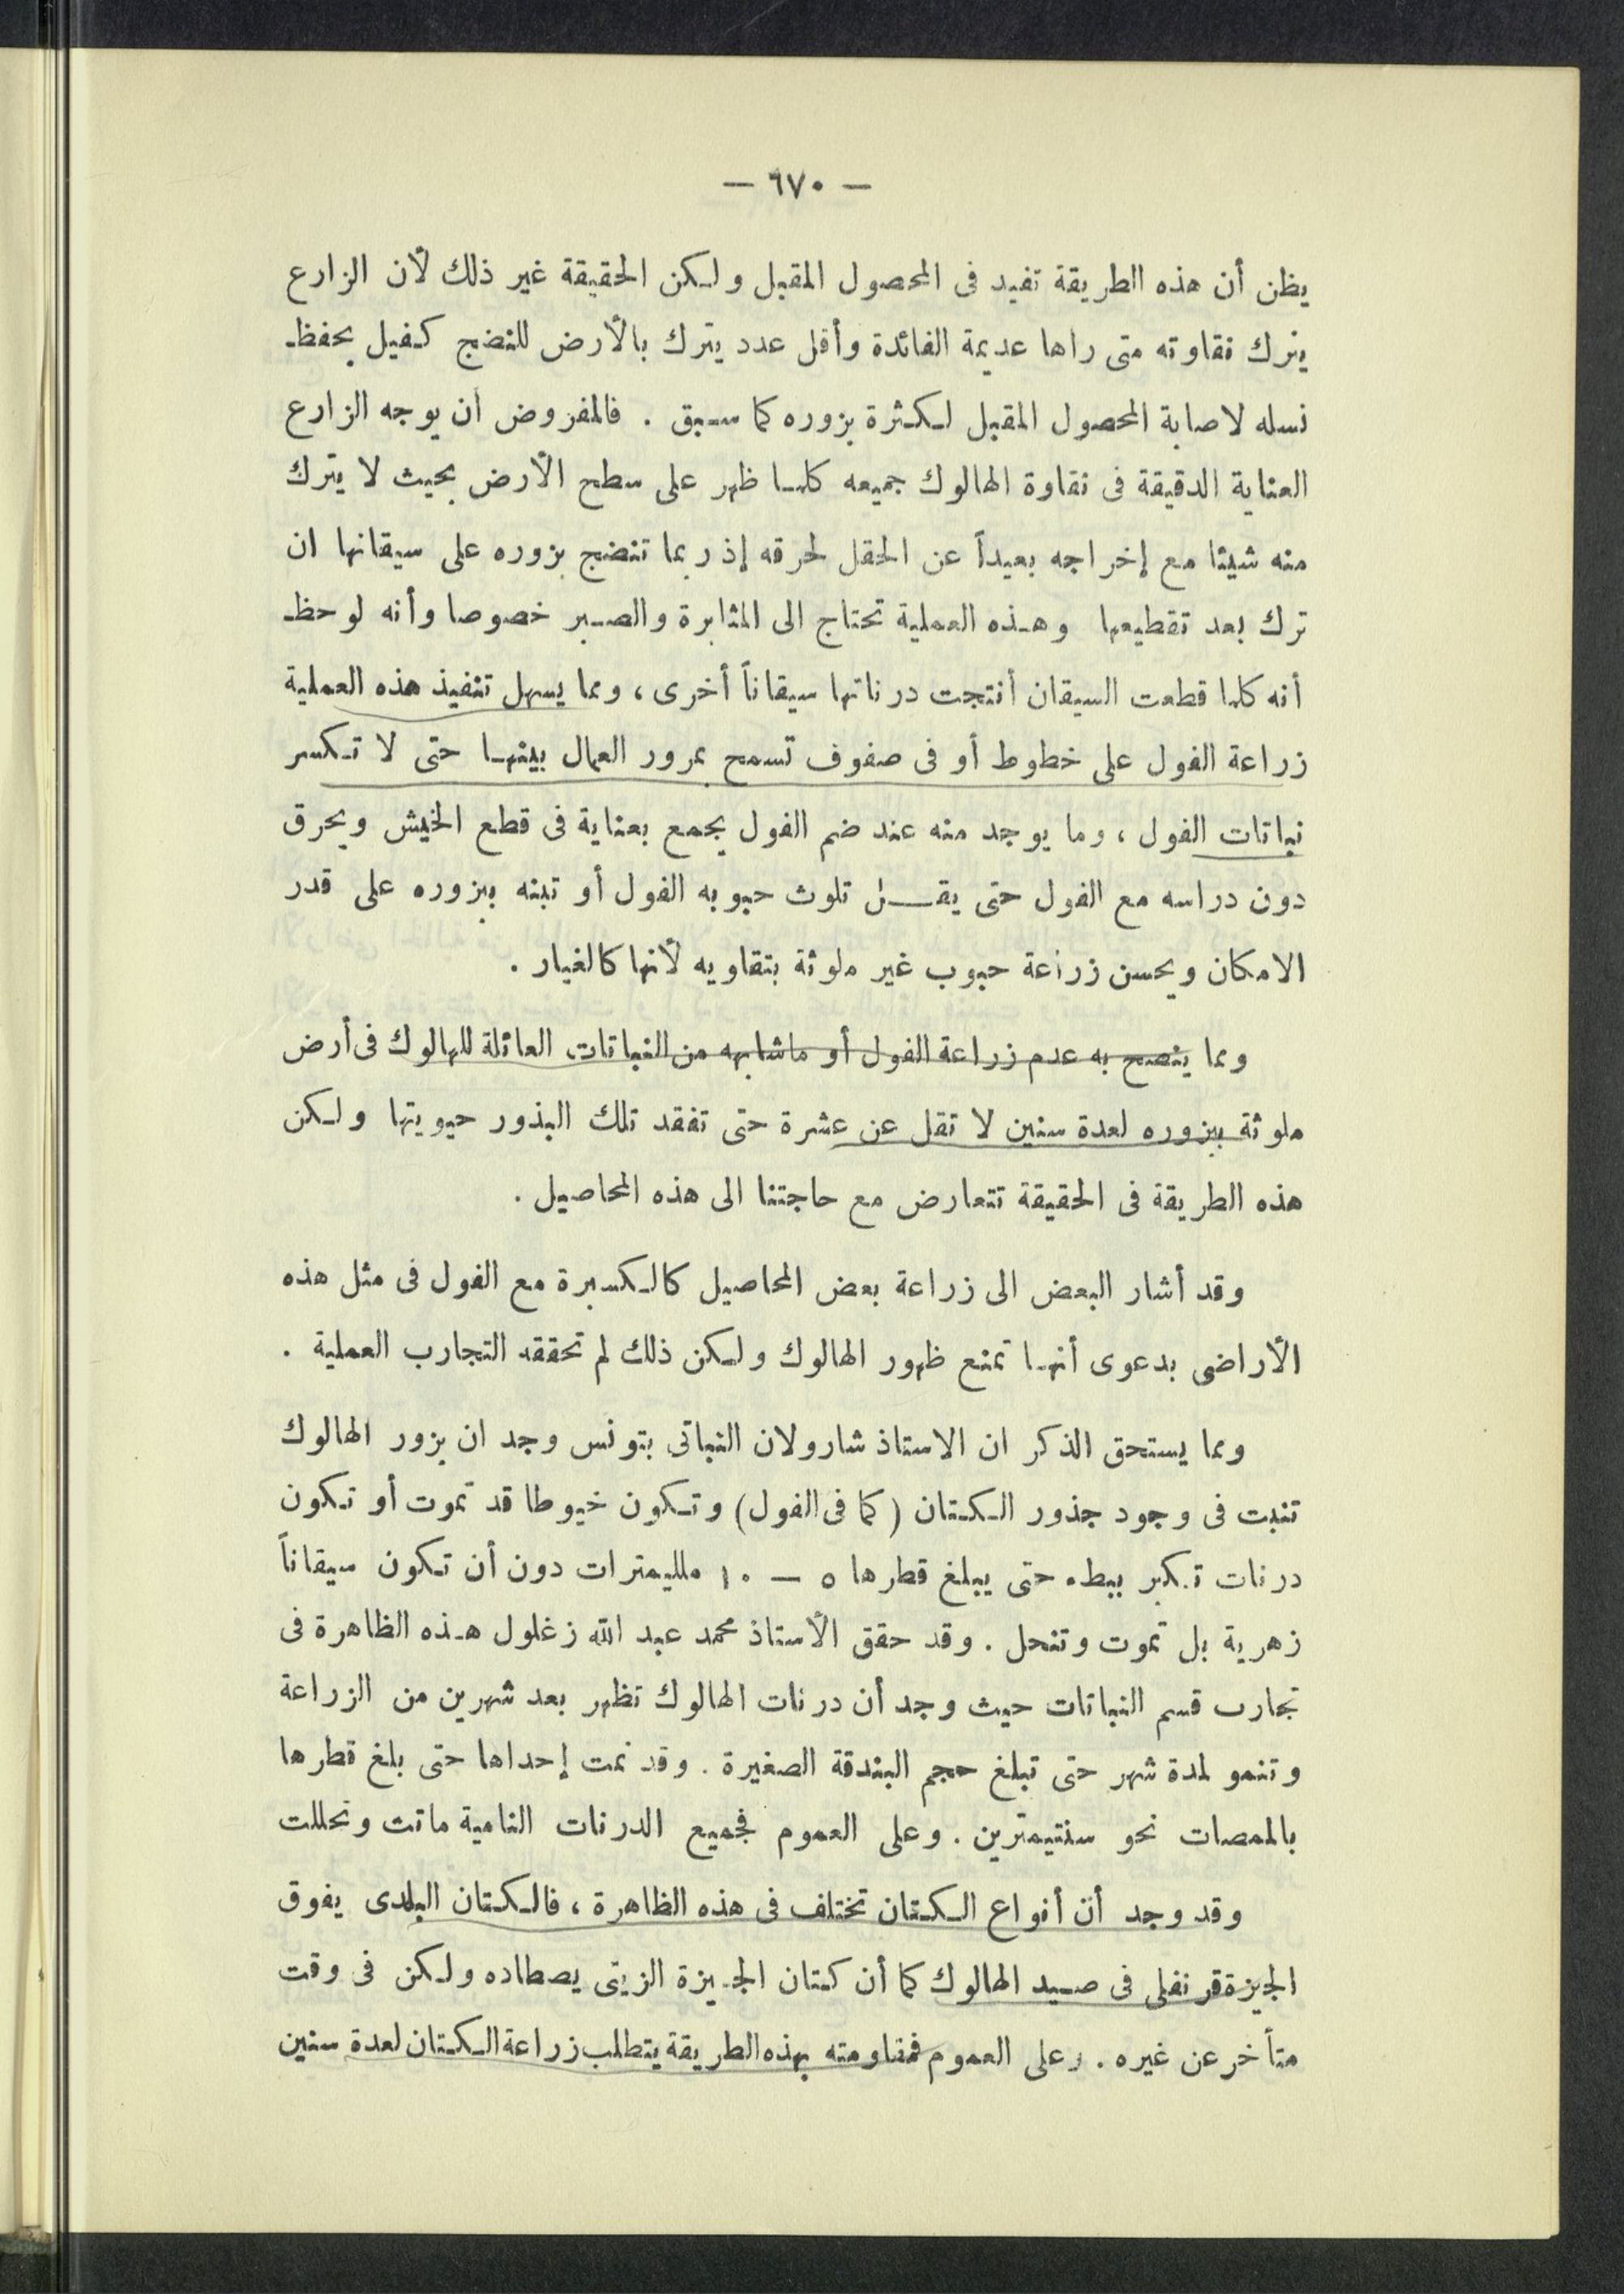 — ٦٧٠ —
يظن أن هذه الطريقة تفيد فى المحصول المقبل ولكن الحقيقة غير ذلك لأن الزارع
يترك نقاوته متى راها عديمة الفائدة وأقل عدد يترك بالأرض للنضج كفيل بحفظ
نسله لاصابة المحصول المقبل لكثرة بزوره كما سبق . فالمفروض أن يوجه الزارع
العناية الدقيقة فى نقاوة الهالوك جميعه كلما ظهر على سطح الأرض بحيث لا يترك
منه شيئا مع إخراجه بعيداً عن الحقل لحرقه إذ ربما تنضج بزوره على سيقانها ان
ترك بعد تقطيعها وهذه العملية تحتاج الى المثابرة والصبر خصوصا وأنه لوحظ
أنه كلما قطعت السيقان أنتجت درناتها سيقاناً أخرى ، ومما يسهل تنفيذ هذه العملية
زراعة الفول على خطوط أو فى صفوف تسمح بمرور العمال بينها حتى لا تكسر
نباتات الفول ، وما يوجد منه عند ضم الفول يجمع بعناية فى قطع الخيش ويحرق
دون دراسه مع الفول حتى يقل تلوث حبوبه الفول أو تبنه ببزوره على قدر
الامكان ويحسن زراعة حبوب غير ملوثة بتقاويه لأنها كالغبار .
ومما ينصح به عدم زراعة الفول أو ماشابهه من النباتات العائلة للهالوك فى أرض
ملوثة ببزوره لعدة سنين لا تقل عن عشرة حتى تفقد تلك البذور حيويتها ولكن
هذه الطريقة فى الحقيقة تتعارض مع حاجتنا الى هذه المحاصيل .
وقد أشار البعض الى زراعة بعض المحاصيل كالكسبرة مع الفول فى مثل هذه
الأراضى بدعوى أنها تمنع ظهور الهالوك ولكن ذلك لم تحققه التجارب العملية .
ومما يستحق الذكر ان الاستاذ شارولان النباتى بتونس وجد ان بزور الهالوك
تنبت فى وجود جذور الكتان (كما فى الفول) وتكون خيوطا قد تموت أو تكون
درنات تكبر ببطء حتى يبلغ قطرها ٥ — ١٠ ملليمترات دون أن تكون سيقاناً
زهرية بل تموت وتنحل . وقد حقق الأستاذ محمد عبد الله زغلول هذه الظاهرة فى
تجارب قسم النباتات حيث وجد أن درنات الهالوك تظهر بعد شهرين من الزراعة
وتنمو لمدة شهر حتى تبلغ حجم البندقة الصغيرة . وقد نمت إحداها حتى بلغ قطرها
بالممصات نحو سنتيمترين . وعلى العموم فجميع الدرنات النامية ماتت وتحللت
وقد وجد أن أنواع الكتان تختلف فى هذه الظاهرة ، فالكتان البلدى يفوق
الجيزة قرنفلى فى صيد الهالوك كما أن كتان الجيزة الزيتى يصطاده ولكن فى وقت
متأخر عن غيره . وعلى العموم فمقاومته بهذه الطريقة يتطلب زراعة الكتان لعدة سنين